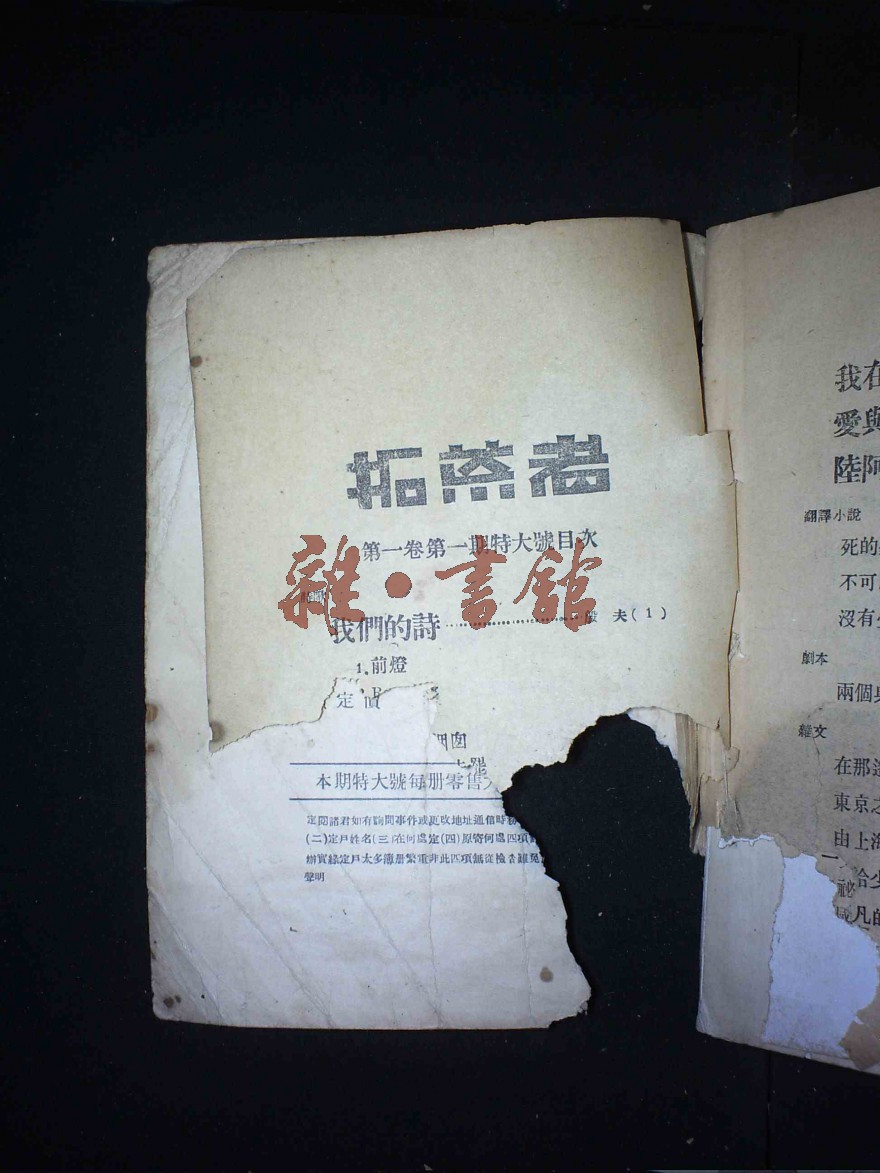 拓荒者
第一卷第一期特大號目次
雜·書館
我們的詩……殷 夫（1）
1. 前燈
定價
本期特大號每册零售
定閱諸君如有詢問事件或更改地址通信時務
（二）定戶姓名（三）在何處定（四）原寄何處四項
辦實緣定戶太多簿册繁重非此四項無從檢查難免
聲明
我在
愛與
陸阿
翻譯小說
死的
不可
沒有
劇本
兩個
雜文
在那
東京之
由上海
恰少
凡的